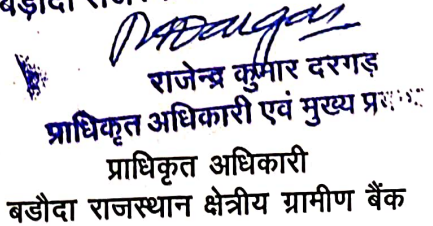 बड़ौदा
राजेन्द्र कुमार दरगड़
प्राधिकृत अधिकारी एवं मुख्य
प्राधिकृत अधिकारी
बडौदा राजस्थान क्षेत्रीय ग्रामीण बैंक